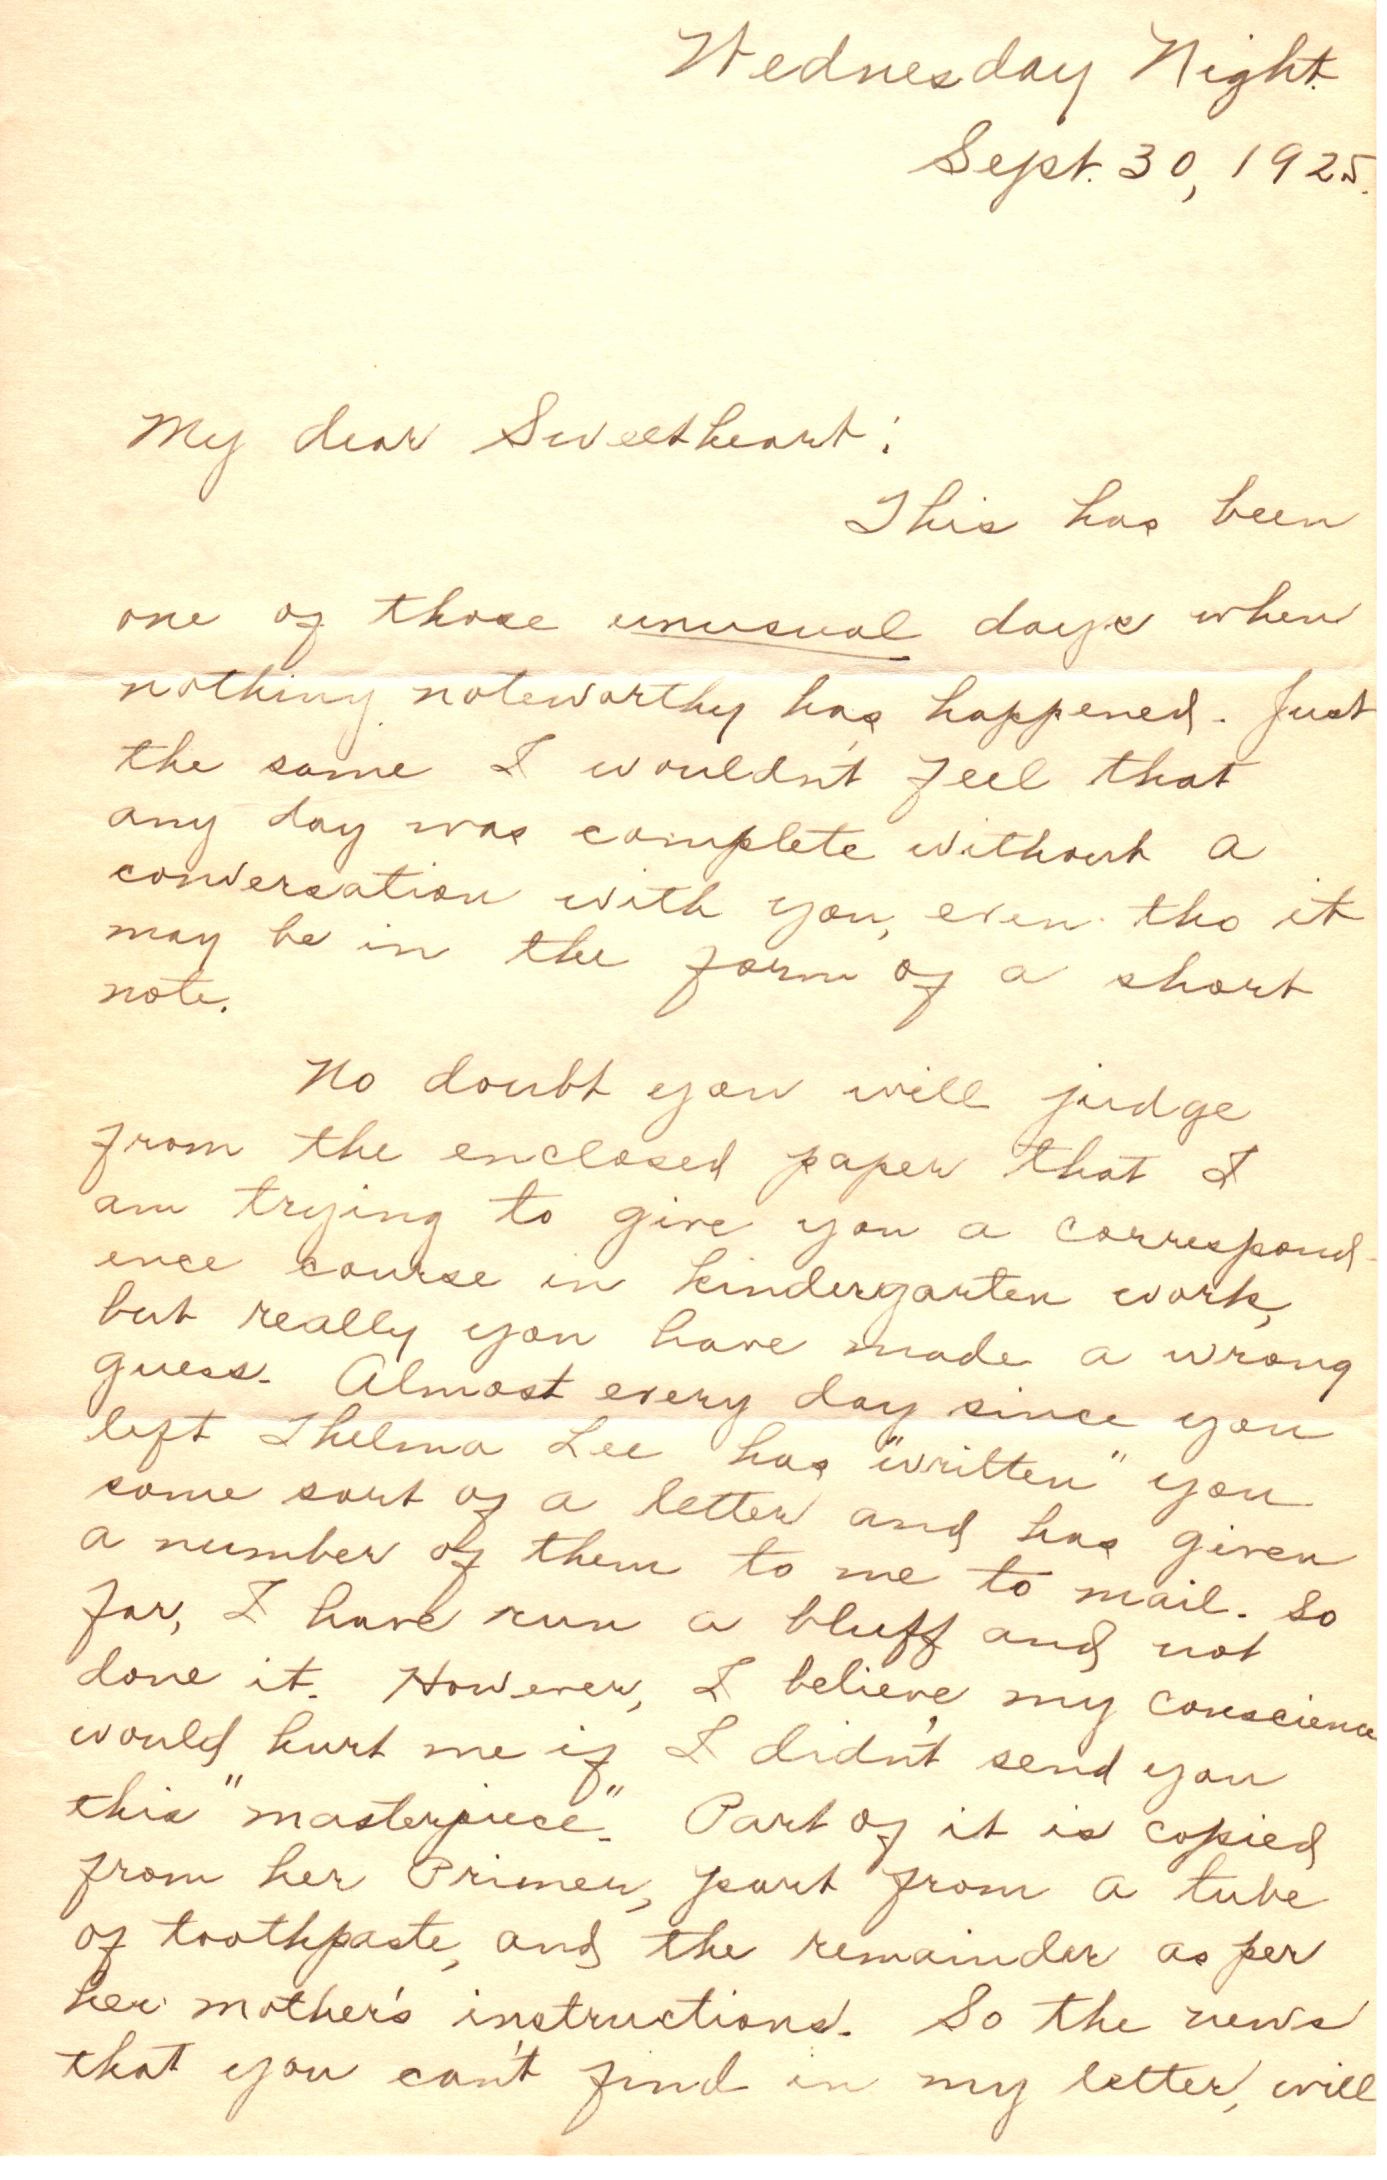 Wednesday Night.
Sept. 30, 1925.
My dear Sweetheart:
This has been
one of those unusual days when
nothing noteworthy has happened. Just
the same I wouldn't feel that
any day was complete without a
conversation with you, even tho it
may be in the form of a short
note.
No doubt you will judge
from the enclosed paper that I
am trying to give you a correspond-
ence course in kindergarten work,
but really you have made a wrong
guess. Almost every day since you
left Thelma Lee has "written" you
some sort of a letter and has given
a number of them to me to mail. So
far, I have run a bluff and not
done it. However, I believe my conscience
would hurt me if I didn't send you
this "masterpiece". Part of it is copied
from her Primer, part from a tube
of toothpaste, and the remainder as per
her mother's instructions. So the news
that you can't find in my letter, will